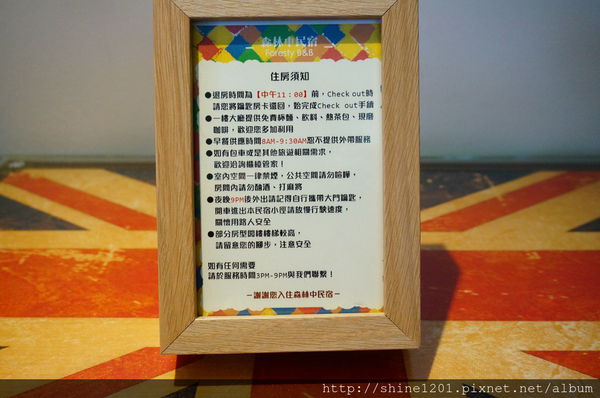 森林中民宿
Foresty B&B
住房須知
●退房時間為【中午11:00】前,Check out時
請您將鑰匙房卡還回,始完成Check out手續
●一樓大廳提供免費杯麵、飲料、熱茶包、現磨
咖啡,歡迎您多加利用
●早餐供應時間8AM-9:30AM恕不提供外帶服務
●如有包車或是其他旅遊相關需求,
歡迎洽詢櫃檯管家!
●室內空間一律禁煙,公共空間請勿喧嘩,
房間內請勿酗酒、打麻將
●夜晚9PM後外出請記得自行攜帶大門鑰匙,
開車進出本民宿小徑請放慢行駛速度,
關懷用路人安全
●部分房型閣樓樓梯較高,
請留意您的腳步,注意安全
如有任何需要
請於服務時間3PM-9PM與我們聯繫!
-謝謝您入住森林中民宿-
http://shine1201.pixnet.net/album